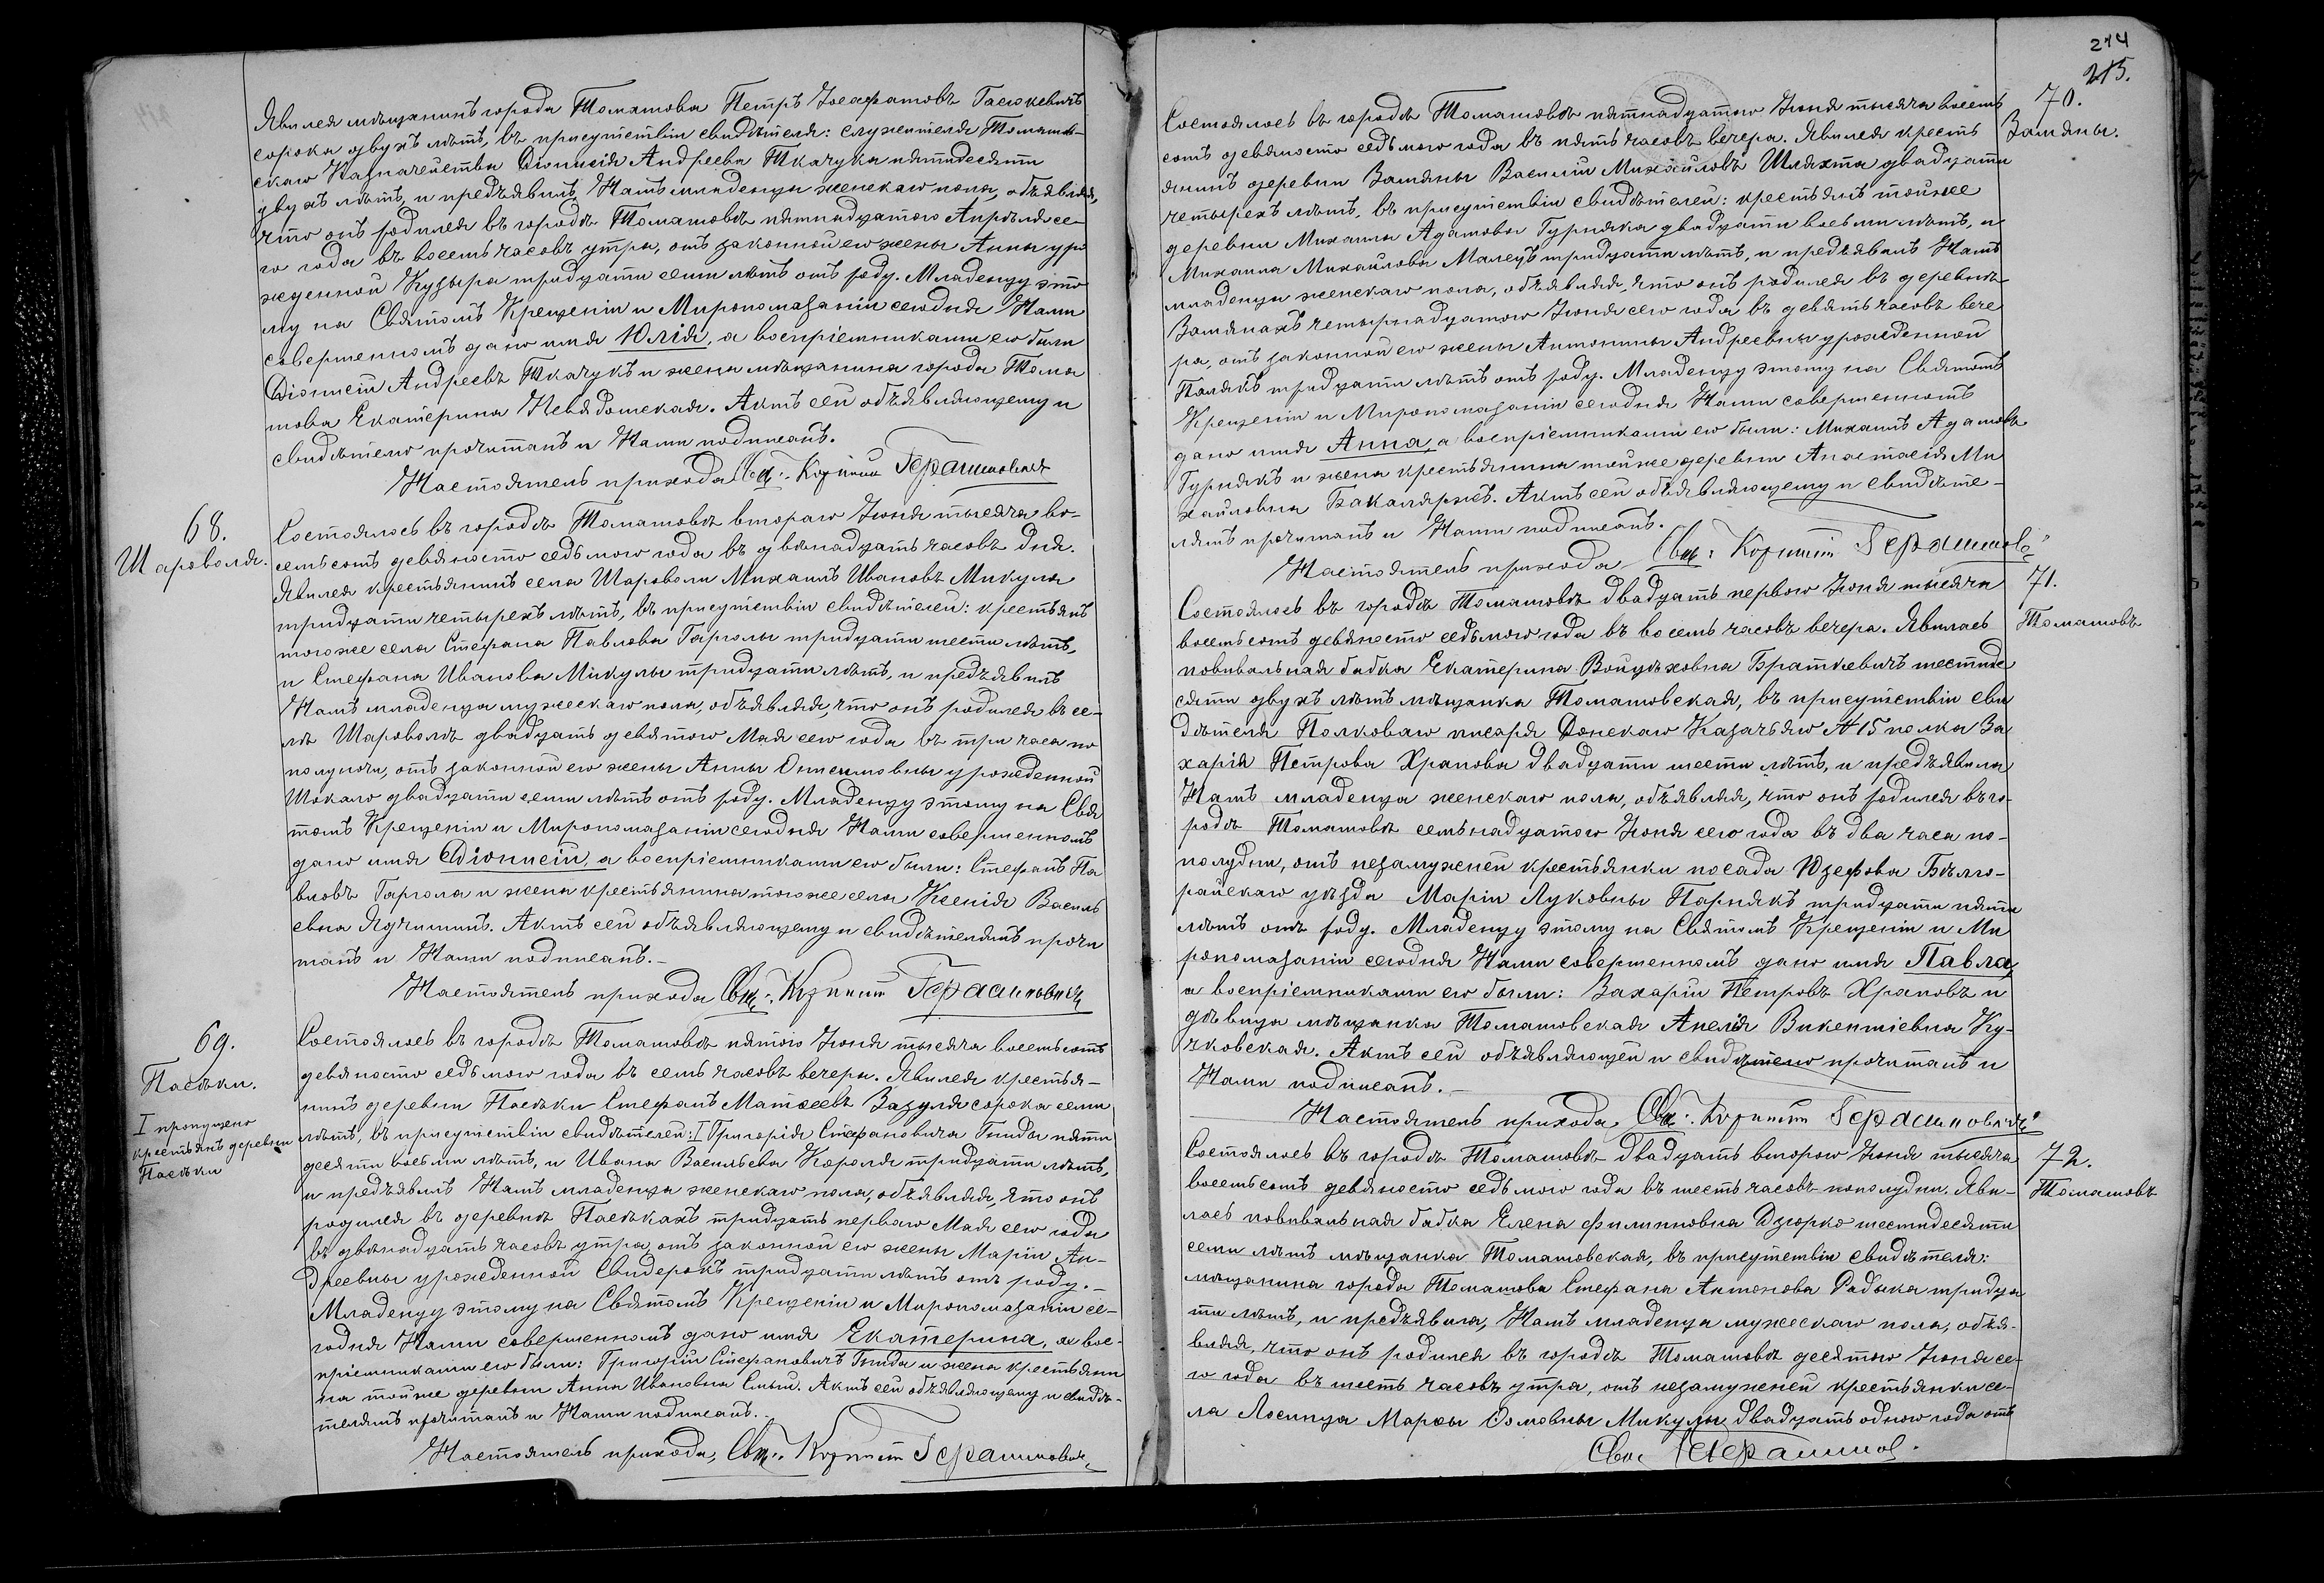 Явился мѣщанинъ города Томашова Петръ Іосафатовъ Гаськевичъ
сорока двухъ лѣтъ, въ присутствіи свидѣтеля: служителя Томашов-
скаго Казначейства Діонисія Андреева Ткачука пятидесяти
двухъ лѣтъ, и предъявилъ Намъ младенца женскаго пола, объявляя,
что онъ родился въ городѣ Томашовѣ пятнадцатого Апрѣля се-
го года въ восемь часовъ утра, отъ законной его жены Анны уро
жденной Кузыра тридцати семи лѣтъ отъ роду. Младенцу это
му на Святомъ Крещеніи и Миропомазаніи сегодня Нами
совершенномъ дано имя Юлія, а воспріемниками его были
Діонисій Андреевъ Ткачукъ и жена мѣщанина города Тома
шова Екатерина Невядомская. Актъ сей объявляющему и
свидѣтелю прочитанъ и Нами подписанъ.
Настоятель прихода Свщ: Корнилій Герасимовичъ
68.
Шароволя.
Состоялось въ городѣ Томашовѣ второго Іюня тысяча во-
семьсотъ девяносто седьмого года въ двѣнадцать часовъ дня.
Явился крестьянинъ села Шароволи Михаилъ Ивановъ Микула
тридцати четырехъ лѣтъ, въ присутствіи свидѣтелей: крестьянъ
того же села Стефана Павлова Гарголы тридцати шести лѣтъ,
и Стефана Иванова Микулы тридцати лѣтъ, и предъявилъ
Намъ младенца мужескаго пола, объявляя, что онъ родился въ се-
лѣ Шароволѣ двадцать девятого Мая сего года въ три часа по
полуночи, отъ законной его жены Анны Онисимовны урожденной
Шокало двадцати семи лѣтъ отъ роду. Младенцу этому на Свя
томъ Крещеніи и Миропомазаніи сегодня Нами совершенномъ
дано имя Діонисій, а воспріемниками его были: Стефанъ Па
вловъ Гаргола и жена крестьянина того же села Ксенія Василь
евна Ядчишинъ. Актъ сей объявляющему и свидѣтелямъ прочи
танъ и Нами подписанъ.-
Настоятель прихода Свщ: Корнилій Герасимовичъ
69.
Пасѣки.
I пропущено
крестьянъ деревни
Пасѣки
Состоялось въ городѣ Томашовѣ пятого Іюня тысяча восемьсотъ
девяносто седьмого года въ семь часовъ вечера. Явился крестья-
нинъ деревни Пасѣки Стефанъ Матѳеевъ Зазуля сорока семи
лѣтъ, въ присутствіи свидѣтелей: I Григорія Стефановича Гнида пяти
десяти восьми лѣтъ, и Ивана Васильева Короля тридцати лѣтъ,
и предъявилъ Намъ младенца женскаго пола, объявляя, что онъ
родился въ деревнѣ Пасѣкахъ тридцать перваго Мая сего года
въ двѣнадцать часовъ утра, отъ законной его жены Маріи Ан-
дреевны урожденной Свидерокъ тридцати лѣтъ отъ роду.-
Младенцу этому на Святомъ Крещеніи и Миропомазаніи се-
годня Нами совершенномъ дано имя Екатерина, а вос-
пріемниками его были: Григорій Стефановичъ Гнида и жена крестьяни
на той же деревни Анна Ивановна Смый. Актъ сей объявляющему и свидѣ-
телямъ прочитанъ и Нами подписанъ.
Настоятель прихода, Свщ: Корнилій Герасимовичъ
214
215.
70.
Замяны.
Состоялось въ городѣ Томашовѣ пятнадцатого Іюня тысяча восемь
сотъ девяносто седьмого года въ пять часовъ вечера. Явился кресть
янинъ деревни Замяны Василій Михайловъ Шляхта двадцати
четырехъ лѣтъ, въ присутствіи свидѣтелей: крестьянъ той же
деревни Михаила Адамова Гурняка двадцати восьми лѣтъ, и
Михаила Михайлова Малецъ тридцати лѣтъ, и предъявилъ Намъ
младенца женскаго пола, объявляя, что онъ родился въ деревнѣ
Замянахъ четырнадцатого Іюня сего года въ девять часовъ вече
ра, отъ законной его жены Антонины Андреевны урожденной
Полякъ тридцати лѣтъ отъ роду. Младенцу этому на Святомъ
Крещеніи и Миропомазаніи сегодня Нами совершенномъ
дано имя Анна, а воспріемниками его были: Михаилъ Адамовъ
Гурнякъ и жена крестьянина той же деревни Анастасія Ми
хайловна Бакаляржъ. Актъ сей объявляющему и свидѣте-
лямъ прочитанъ и Нами подписанъ.
Настоятель прихода Свщ: Корнилій Герасимов
71.
Томашовъ
Состоялось въ городѣ Томашовѣ двадцать первого Іюня тысяча
восемьсотъ девяносто седьмого года въ восемь часовъ вечера. Явилась
повивальная бабка Екатерина Войцѣховна Браткевичъ шестиде
сяти двухъ лѣтъ мѣщанка Томашовская, въ присутствіи сви
дѣтеля Полковаго писаря Донскаго Казачьяго №15 полка За
харія Петрова Храпова двадцати шести лѣтъ, и предъявила
Намъ младенца женскаго пола, объявляя, что онъ родился въ го-
родѣ Томашовѣ семьнадцатого Іюня сего года въ два часа по-
полудни, отъ незамужней крестьянки посада Юзефова Бѣлго-
райскаго уѣзда Маріи Луковны Парнякъ тридцати пяти
лѣтъ отъ роду. Младенцу этому на Святомъ Крещеніи и Ми
ропомазаніи сегодня Нами совершенномъ дано имя Павла,
а воспріемниками его были: Захарій Петровъ Храповъ и
дѣвица мѣщанка Томашовская Анеля Викентіевна Ку-
чковская. Актъ сей объявляющей и свидѣтелю прочитанъ и
Нами подписанъ.-
Настоятель прихода, Свщ: Корнилій Герасимовичъ
72.
Томашовъ
Состоялось въ городѣ Томашовѣ двадцать второго Іюня тысяча
восемьсотъ девяносто седьмого года въ шесть часовъ пополудни. Яви-
лась повивальная бабка Елена Филипповна Дзюрко шестидесяти
семи лѣтъ мѣщанка Томашовская, въ присутствіи свидѣтеля:
мѣщанина города Томашова Стефана Антонова Радыка тридца
ти лѣтъ, и предъявила, Намъ младенца мужескаго пола, объя-
вляя, что онъ родился въ городѣ Томашовѣ десятого Іюня се-
го года въ шесть часовъ утра, отъ незамужней крестьянки се-
ла Лосинца Марѳы Ѳомовны Микулы двадцать одного года отъ
Свщ. Герасимов.